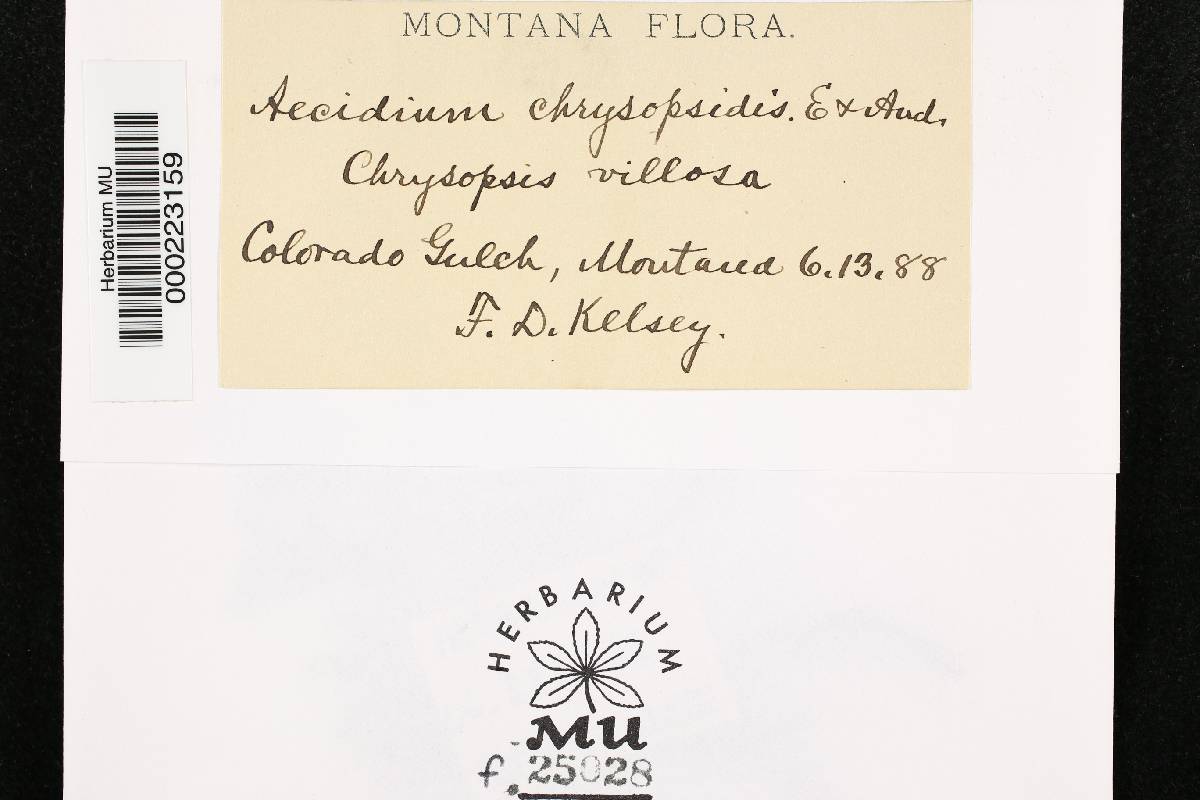 MONTANA FLORA.
Aecidium chrysopsidis. E & And.
Chrysopsis villosa
Colorado Gulch, Montana 6.13.88
F. D. Kelsey.
Herbarium MU
000223159
HERBARIUM
MU
f. 25028